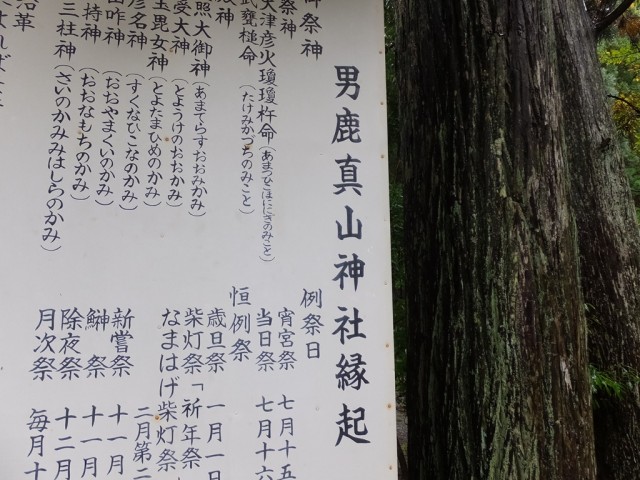 男鹿真山神社縁起
御祭神
祭神
天津彦火瓊瓊杵命（あまつひこほににぎのみこと）
武甕槌命（たけみかづちのみこと）
殿神
照大御神（あまてらすおおみかみ）
受大神（とようけのおおかみ）
玉毘女神（とよたまひめのかみ）
彦名神（すくなひこなのかみ）
山咋神（おおやまくいのかみ）
持神（おおなもちのかみ）
三柱神（さいのかみみはしらのかみ）
沿革
例祭日
宵宮祭　七月十五
当日祭　七月十六
恒例祭
歳旦祭　一月一日
柴灯祭「祈年祭
なまはげ柴灯祭
二月第二
新嘗祭　十一月
鰰祭　十一月
除夜祭　十二月
月次祭　毎月十